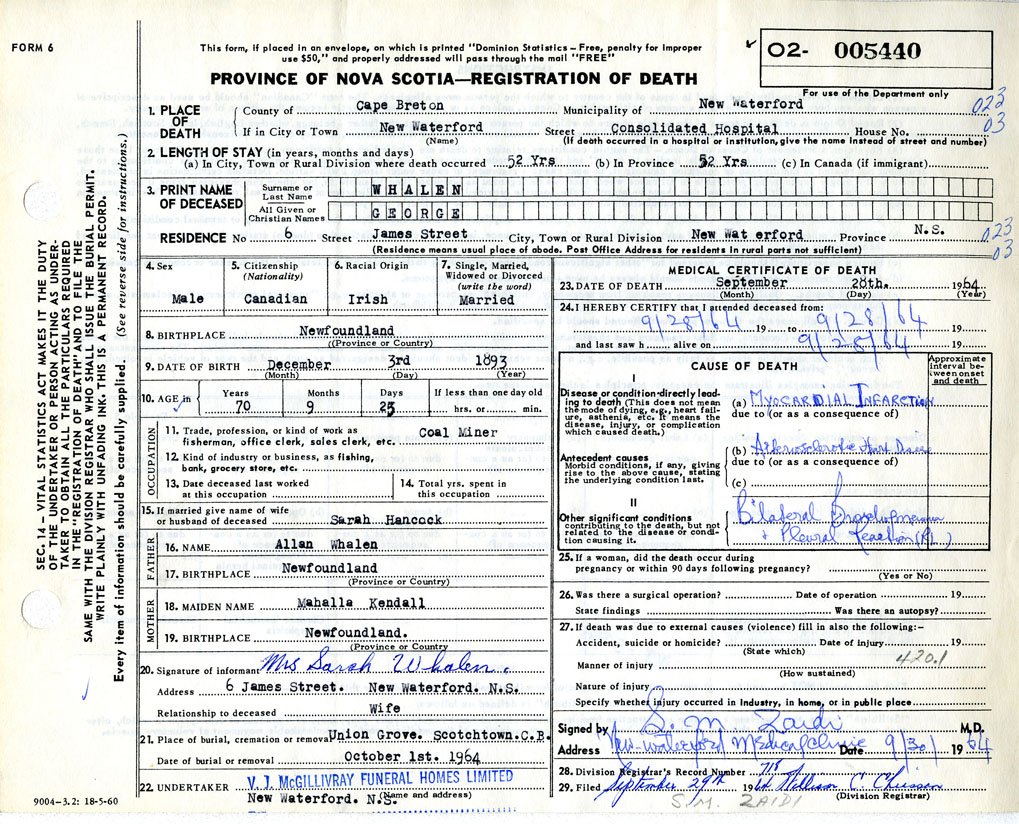 FORM 6
This form, if placed in an envelope, on which is printed "Dominion Statistics – Free, penalty for improper
use $50," and properly addressed will pass through the mail "FREE"
✓ 02- 005440
For use of the Department only
PROVINCE OF NOVA SCOTIA—REGISTRATION OF DEATH
SEC. 14 – VITAL STATISTICS ACT MAKES IT THE DUTY
OF THE UNDERTAKER OR PERSON ACTING AS UNDER-
TAKER TO OBTAIN ALL THE PARTICULARS REQUIRED
IN THE "REGISTRATION OF DEATH" AND TO FILE THE
SAME WITH THE DIVISION REGISTRAR WHO SHALL ISSUE THE BURIAL PERMIT.
WRITE PLAINLY WITH UNFADING INK. THIS IS A PERMANENT RECORD.
Every item of information should be carefully supplied. (See reverse side for instructions.)
1. PLACE OF DEATH
County of Cape Breton Municipality of New Waterford 023
If in City or Town New Waterford Street Consolidated Hospital House No. 03
(Name) (If death occurred in a hospital or institution, give the name instead of street and number)
2. LENGTH OF STAY (in years, months and days)
(a) In City, Town or Rural Division where death occurred 52 Yrs (b) In Province 52 Yrs (c) In Canada (if immigrant)
3. PRINT NAME OF DECEASED
Surname or Last Name WHALEN
All Given or Christian Names GEORGE
RESIDENCE No 6 Street James Street City, Town or Rural Division New Wat erford Province N.S. 023
03
(Residence means usual place of abode. Post Office Address for residents in rural parts not sufficient)
4. Sex Male
5. Citizenship (Nationality) Canadian
6. Racial Origin Irish
7. Single, Married, Widowed or Divorced (write the word) Married
8. BIRTHPLACE Newfoundland
(Province or Country)
9. DATE OF BIRTH December 3rd 1893
(Month) (Day) (Year)
10. AGE in ✓ Years 70 Months 9 Days 25 If less than one day old hrs. or min.
OCCUPATION
11. Trade, profession, or kind of work as
fisherman, office clerk, sales clerk, etc. Coal Miner
12. Kind of industry or business, as fishing,
bank, grocery store, etc.
13. Date deceased last worked
at this occupation
14. Total yrs. spent in
this occupation
15. If married give name of wife
or husband of deceased Sarah Hancock
FATHER
16. NAME Allan Whalen
17. BIRTHPLACE Newfoundland
(Province or Country)
MOTHER
18. MAIDEN NAME Mahalla Kendall
19. BIRTHPLACE Newfoundland.
(Province or Country)
20. Signature of informant Mrs Sarah Whalen.
Address 6 James Street. New Waterford. N.S.
Relationship to deceased Wife
✓
21. Place of burial, cremation or removal Union Grove. Scotchtown.C.B.
Date of burial or removal October 1st. 1964
22. UNDERTAKER V. J. McGILLIVRAY FUNERAL HOMES LIMITED
New Waterford. N.S. (Name and address)
9004–3.2: 18-5-60
MEDICAL CERTIFICATE OF DEATH
23. DATE OF DEATH September 28th. 1964
(Month) (Day) (Year)
24. I HEREBY CERTIFY that I attended deceased from:
9/28/64 19 to 9/28/64 19
and last saw h alive on 9/28/64 19
CAUSE OF DEATH
Approximate interval between onset and death
I
Disease or condition directly lead-
ing to death (This does not mean
the mode of dying, e.g., heart fail-
ure, asthenia, etc. It means the
disease, injury, or complication
which caused death.)
(a) MYOCARDIAL INFARCTION
due to (or as a consequence of)
Antecedent causes
Morbid conditions, if any, giving
rise to the above cause, stating
the underlying condition last.
(b) Atherosclerotic Heart Disease
due to (or as a consequence of)
(c)
II
Other significant conditions
contributing to the death, but not
related to the disease or condi-
tion causing it.
Bilateral Bronchopneumonia
+ Pleural reaction (R)
25. If a woman, did the death occur during
pregnancy or within 90 days following pregnancy?
(Yes or No)
26. Was there a surgical operation? Date of operation 19
State findings Was there an autopsy?
27. If death was due to external causes (violence) fill in also the following:–
Accident, suicide or homicide? Date of injury 19
(State which) 420.1
Manner of injury
(How sustained)
Nature of injury
Specify whether injury occurred in industry, in home, or in public place
Signed by S. M Zaidi M.D.
Address New-waterford Medical Clinic Date 9/30/ 1964
28. Division Registrar's Record Number 718
29. Filed September 29th 1964 William C.
(Division Registrar)
S.M. ZAIDI